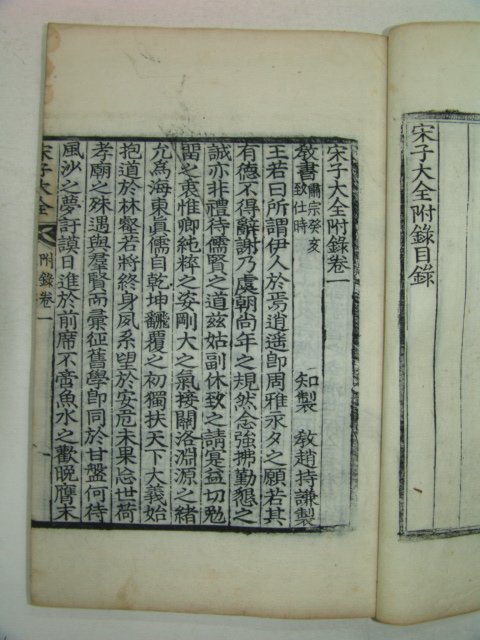 宋子大全附錄目錄
宋子大全附錄卷一
敎書 肅宗癸亥致仕時 知製 敎趙持謙製
王若曰所謂伊人於焉逍遙卽周雅永夕之願若其
有德不得辭謝乃虞朝尚年之規然念強拂勤懇之
誠亦非禮待儒賢之道玆姑副休致之請寔益切勉
留之衷惟卿純粹之姿剛大之氣接關洛淵源之緖
允爲海東眞儒自乾坤飜覆之初獨扶天下大義始
抱道於林壑若將終身夙系望於安危未果忘世荷
孝廟之殊遇與羣賢而彙征舊學卽同於甘盤何待
風沙之夢訏謨日進於前席不啻魚水之歡晩膺末
宋子大全 附錄卷一